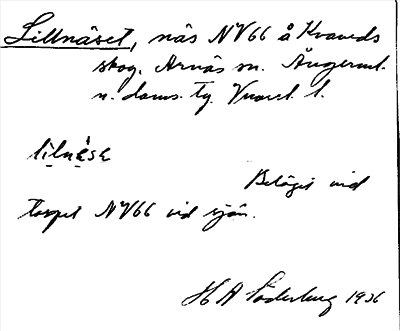 Lillnäset, näs NV66 å Kraveds
skog. Arnäs sn. Ångerml.
n. doms. tg. Vnorrl. l.
lilnése
Beläget vid
torpet NV66 vid sjön.
H A Söderberg 1936